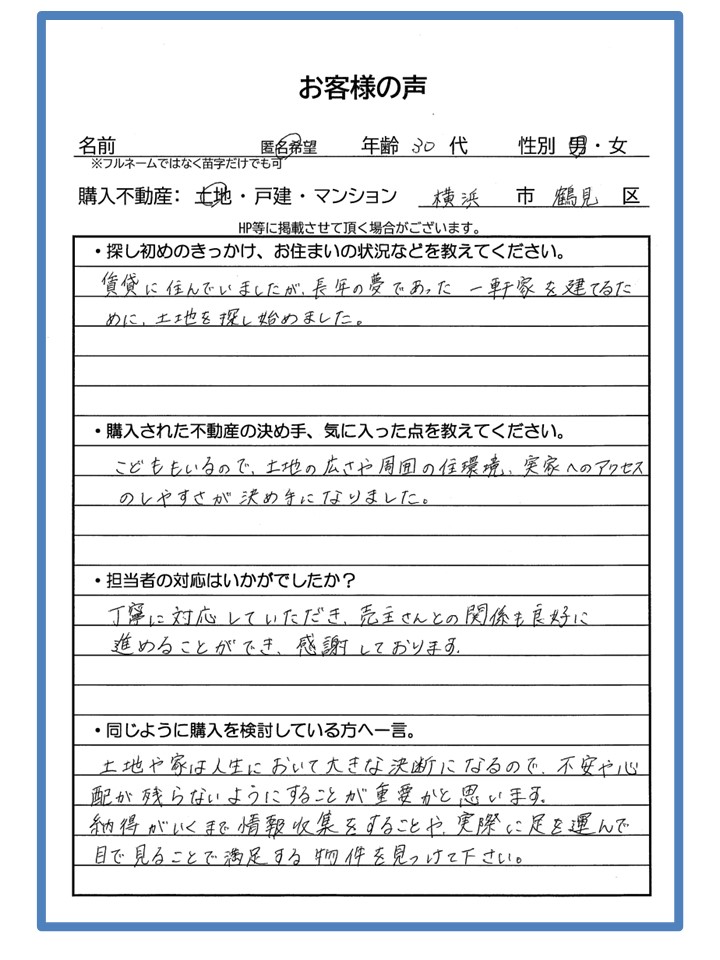 お客様の声
名前 匿名希望 年齢 30 代 性別 男・女
※フルネームではなく苗字だけでも可
購入不動産: 土地・戸建・マンション 横浜 市 鶴見 区
HP等に掲載させて頂く場合がございます。
・探し初めのきっかけ、お住まいの状況などを教えてください。
賃貸に住んでいましたが、長年の夢であった一軒家を建てるた
めに、土地を探し始めました。
・購入された不動産の決め手、気に入った点を教えてください。
こどももいるので、土地の広さや周囲の住環境、実家へのアクセス
のしやすさが決め手になりました。
・担当者の対応はいかがでしたか?
丁寧に対応していただき、売主さんとの関係も良好に
進めることができ、感謝しております。
・同じように購入を検討している方へ一言。
土地や家は人生において大きな決断になるので、不安や心
配が残らないようにすることが重要かと思います。
納得がいくまで情報収集をすることや、実際に足を運んで
目で見ることで満足する物件を見つけて下さい。